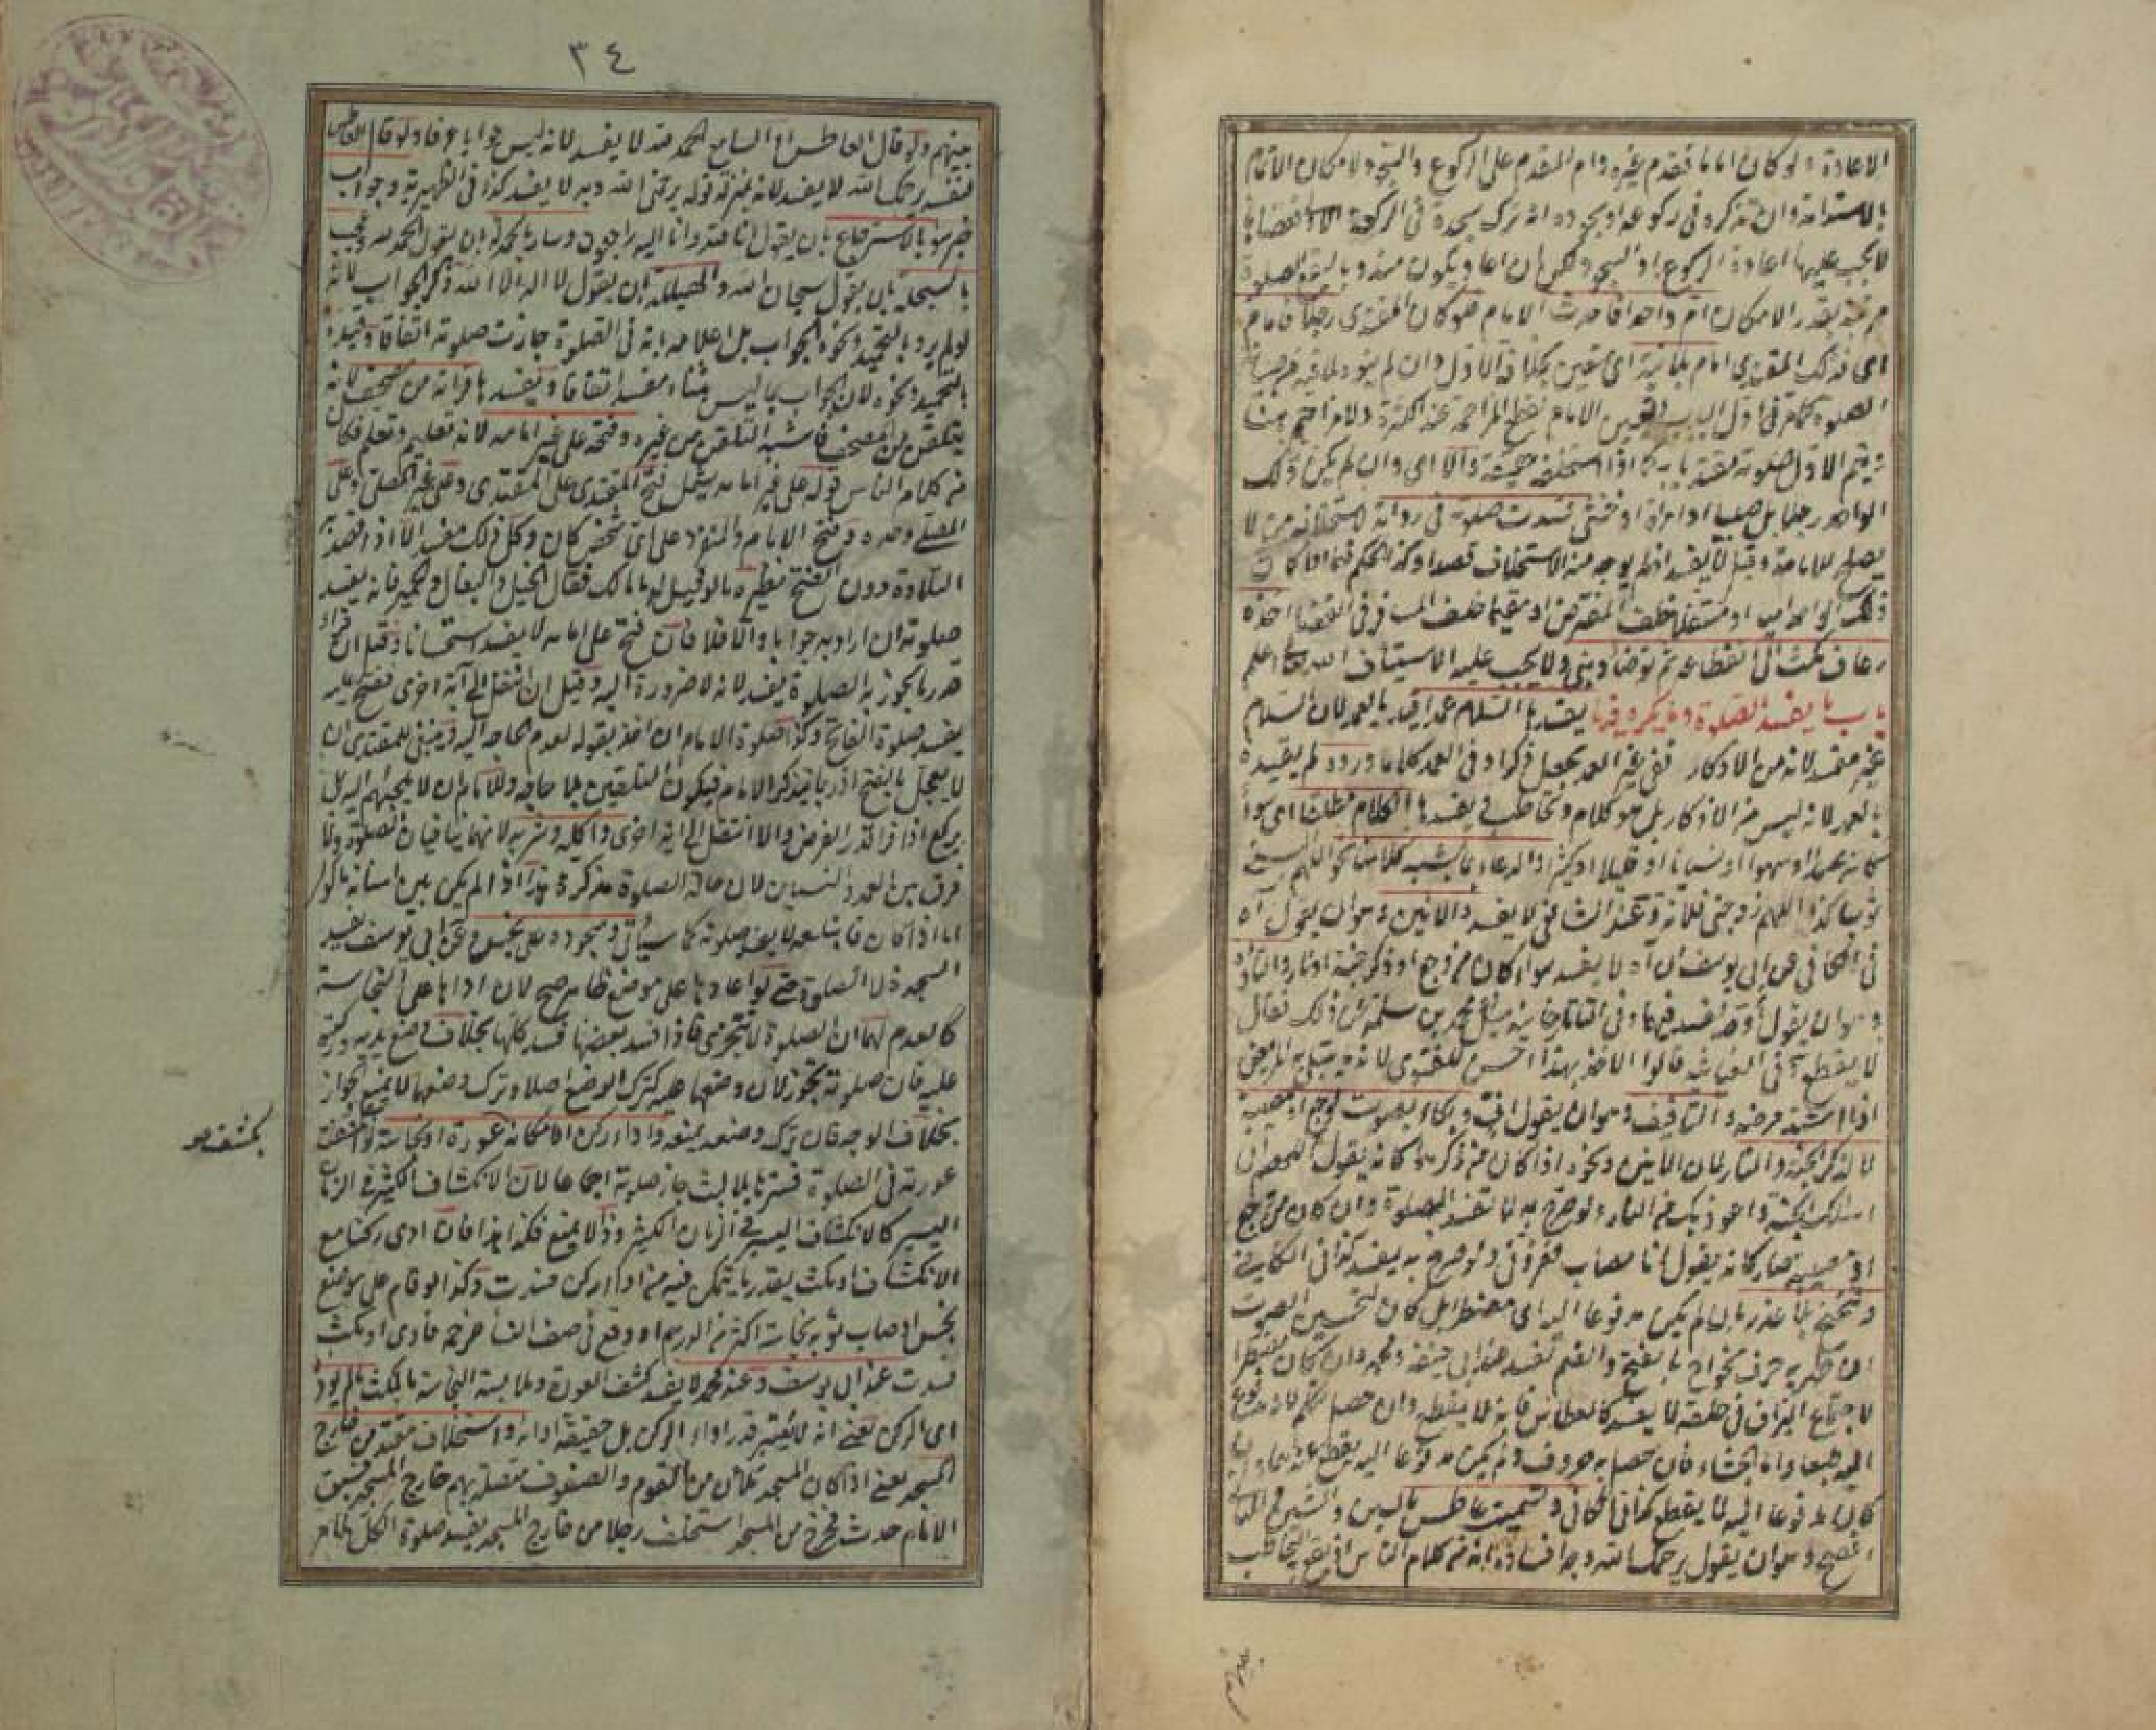 الاعادة ولو كان اماما فقدم غيره وام المقدم على الركوع والسجود لامكان الاتمام
بالاستدامة وان تذكره فى ركوعه او سجوده انه ترك سجدة فى الركعة الاولى فقضاها
لا يجب عليه اعادة الركوع او السجود لكن ان اعاد يكون مندوبا لتقع الصلوة
مرتبة بقدر الامكان ام واحدا فاحدث الامام لو كان المقتدى رجلا فامام
اى فذلك المقتدى امام بلا نية اى تعين خلافه الاول وان لم ينو لما فيه من صيانة
الصلوة كما مر فى اول الباب وتعيين الامام لقطع المزاحمة عند الكثرة ولا مزاحم هنا
ويتم الاول صلوته مقتديا به كما اذا استخلفه حقيقة والا اى وان لم يكن ذلك
الواحد رجلا بل صبيا او امراة او خنثى فسدت صلوته فى رواية لاستخلافه من لا
يصلح للامامة وقيل لا يفسد اذ لم يوجد منه الاستخلاف قصدا وكذا الحكم فيما اذا كان
ذلك الواحد اميا او متنفلا خلف المفترض او مقيما خلف المسافر فى القضا اخذه
رعاف مكث الى انقطاعه ثم توضأ وبنى ولا يجب عليه الاستيناف الله تعالى اعلم
باب ما يفسد الصلوة وما يكره فيها يفسدها السلام عمدا قيد بالعمد لان السلام
غير مفسد لانه من الاذكار ففى غير العمد يجعل ذكرا وفى العمد كلاما ورد ولم يقيده
بالعمد لانه ليس من الاذكار بل هو كلام وتخاطب ويفسدها الكلام مطلقا اى سواء
كان عمدا او سهوا او نسيانا او قليلا او كثيرا والدعاء بما يشبه كلامنا نحو اللهم البسنى
ثوبا كذا اللهم زوجنى فلانة وعند الشافى لا يفسد والانين وهو ان يقول آه
فى الكافى عن ابى يوسف ان آه لا يفسد سواء كان من وجع او ذكر جنة او نار والتاوه
وهو ان يقول أوه يفسد فيهما وفى التاتارخانية سئل محمد بن سلمة عن ذلك فقال
لا يقطع فى الغياثية قالوا الاخذ بهذا احسن للفتوى لانه مما يبتلى به المريض
اذا اشتد مرضه والتافيف وهو ان يقول اف وبكاء بصوت لوجع او مصيبة
لا لذكر الجنة والنار لان الانين ونحوه اذا كان من ذكرهما كانه يقول اللهم انى
اسألك الجنة واعوذ بك من النار ولو صرح به لا تفسد الصلوة وان كان من وجع
او مصيبة صار كانه يقول انا مصاب فعزونى ولو صرح به يفسد كذا فى الكافى
وتنحنح بلا عذر بان لم يكن مدفوعا اليه اى مضطرا بل كان لتحسين الصوت
ان ظهر به حرف نحو اح بالفتح والضم تفسد عند ابى حنيفة ومحمد وان كان مضطرا
لاجتماع البزاق فى حلقه لا يفسد كالعطاس فانه لا يقطع وان حصل تكلم لانه مدفوع
اليه طبعا واما الجشاء فان حصل به حروف ولم يكن مدفوعا اليه يقطع عندهما وان
كان مدفوعا اليه لا يقطع كذا فى الكافى وتشميت عاطس بالسين والشين والثانى
افصح وهو ان يقول يرحمك الله وجه افساده انه من كلام الناس اذ يقع التخاطب
٣٤
بينهم ولو قال العاطس او السامع الحمد لله لا يفسد لانه ليس جوابا عرفا ولو قال العاطس
لنفسه يرحمك الله لا يفسد لانه بمنزلة قوله يرحمنى الله وبه لا يفسد كذا فى الظهيرية وجواب
خبر سوء بالاسترجاع بان يقول انا لله وانا اليه راجعون وسار بالحمدلة بان يقول الحمد لله وعجب
بالسبحلة بان يقول سبحان الله والهيللة بان يقول لا اله الا الله ذكر الجواب لانه
لو لم يرد بالتحميد ونحوه الجواب بل اعلامه انه فى الصلوة جازت صلوته اتفاقا وقيده
بالتحميد ونحوه لان الجواب بما ليس بثناء مفسد اتفاقا ويفسدها قرائة من مصحف لانه
يتلقن من المصحف فاشبه التلقن من غيره وفتحه على غير امامه لانه تعليم وتعلم فكان
من كلام الناس قوله على غير امامه يشمل فتح المقتدى على المقتدى وعلى غير المصلى وعلى
المصلى وحده وفتح الامام والمنفرد على اى شخص كان وكل ذلك مفسد الا اذا قصد
التلاوة دون الفتح نظيره ما لو قيل له ما مالك فقال الخيل والبغال والحمير فانه يفسد
صلوته ان اراد به جوابا والا فلا فان فتح على امامه لا يفسد استحسانا وقيل ان قرأ
قدر ما يجوز به الصلوة يفسد لانه لا ضرورة اليه وقيل ان انتقل الى آية اخرى ففتح عليه
يفسد صلوة الفاتح وكذا صلوة الامام ان اخذ بقوله لعدم الحاجة اليه وينبغى للمقتدى ان
لا يعجل بالفتح اذ ربما يتذكر الامام فيكون التلقين بلا حاجة وللامام ان لا يلجئهم اليه بل
يركع اذا قرأ قدر الفرض والا انتقل الى آية اخرى واكله وشربه لانهما ينافيان الصلوة ولا
فرق بين العمد والنسيان لان حالة الصلوة مذكرة هذا اذا لم يكن بين اسنانه مأكول
اما اذا كان فابتلعه لا يفسد صلوته كما سيأتى وسجوده على نجس وعن ابى يوسف يفسد
السجدة لا الصلوة حتى لو اعادها على موضع طاهر صح لان اداءها على النجاسة
كالعدم لهما ان الصلوة لا تتجزى فاذا فسد بعضها فسد كلها بخلاف وضع يديه وركبتيه
عليه فان صلوته تجوز لان وضعهما عليه كترك الوضع اصلا وترك وضعهما لا يمنع الجواز
بخلاف الوجه فان ترك وضعه يمنعه واداء ركن او امكانه بكشف عورة او نجاسة لو انكشفت
عورته فى الصلوة فسترها بلا لبث جاز صلوته اجماعا لان الانكشاف الكثير فى الزمان
اليسير كالانكشاف اليسير فى الزمان الكثير وذا لا يمنع فكذا هذا فان ادى ركنا مع
الانكشاف او مكث بقدر ما يتمكن فيه من اداء ركن فسدت وكذا لو قام على موضع
نجس او صاب ثوبه نجاسة اكثر من الدرهم او وقع فى صف النساء لزحمة فادى او مكث
فسدت عند ابى يوسف وعند محمد لا يفسد كشف العورة وملابسة النجاسة بالمكث ما لم يؤد
اى الركن يعنى انه لا يعتبر قدر اداء الركن بل حقيقة ادائه واستخلاف مقتد من خارج
المسجد يعنى اذا كان المسجد ملآن من القوم والصفوف متصلة بهم خارج المسجد فسبق
الامام حدث فخرج من المسجد استخلف رجلا من خارج المسجد يفسد صلوة الكل لما مر
بكشف صو